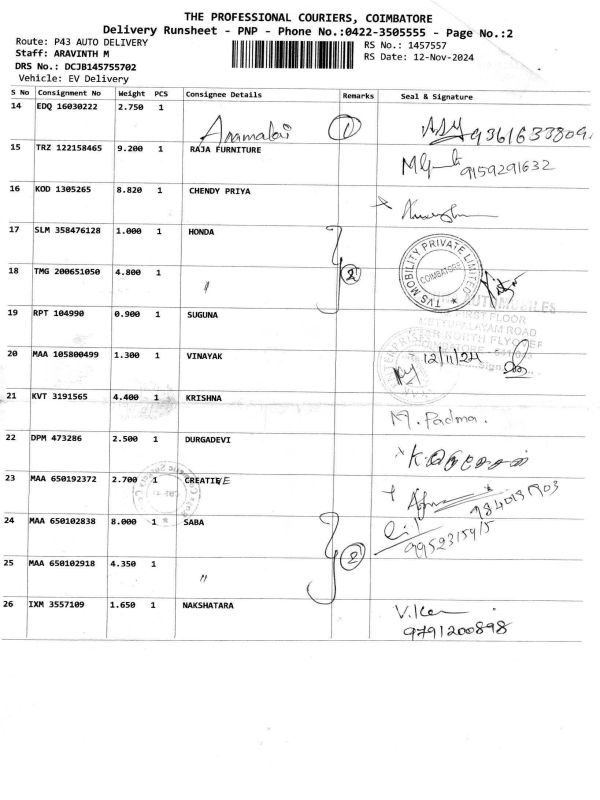 THE PROFESSIONAL COURIERS, COIMBATORE
Delivery Runsheet - PNP - Phone No.:0422-3505555 - Page No.:2
Route: P43 AUTO DELIVERY
RS No.: 1457557
Staff: ARAVINTH M
RS Date: 12-Nov-2024
DRS No.: DCJB145755702
Vehicle: EV Delivery
S No Consignment No Weight PCS Consignee Details Remarks Seal & Signature
14 EDQ 16030222 2.750 1 Annamalai 1
15 TRZ 122158465 9.200 1 RAJA FURNITURE 9159291632
16 KOD 1305265 8.820 1 CHENDY PRIYA
17 SLM 358476128 1.000 1 HONDA 2
TVS MOBILITY PRIVATE LIMITED
COIMBATORE
18 TMG 200651050 4.800 1 〃
FIRST FLOOR
METTUPALAYAM ROAD
NORTH FLYOVER
19 RPT 104990 0.900 1 SUGUNA
20 MAA 105800499 1.300 1 VINAYAK 12/11/24
21 KVT 3191565 4.400 1 KRISHNA M. Padma.
22 DPM 473286 2.500 1 DURGADEVI
23 MAA 650192372 2.700 1 CREATIVE
24 MAA 650102838 8.000 1 SABA 2 9952315915
25 MAA 650102918 4.350 1 〃
26 IXM 3557109 1.650 1 NAKSHATARA 9791200898